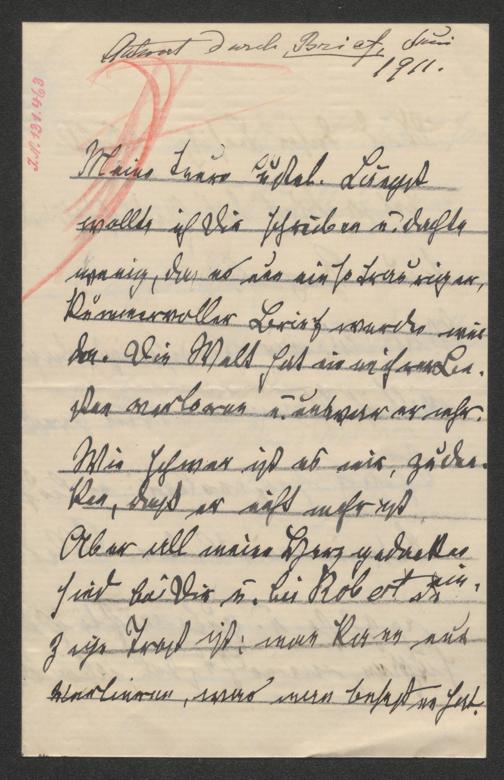 Antwort durch Brief, Juni
1911.
I.N. 191.463
Meine teure Gustel. Längst
wollte ich Dir schreiben u. dachte
wenig, daß es ein so trauriger,
kummervoller Brief werden wür
de. Die Welt hat in ihren Be-
sten verloren u.
Wie schwer ist es mir, zu den-
ken, daß er nicht mehr ist
Aber all meine Herzgedanken
sind bei Dir u. bei Robert
zige Trost ist: man kann nur
verlieren, was man besessen hat.